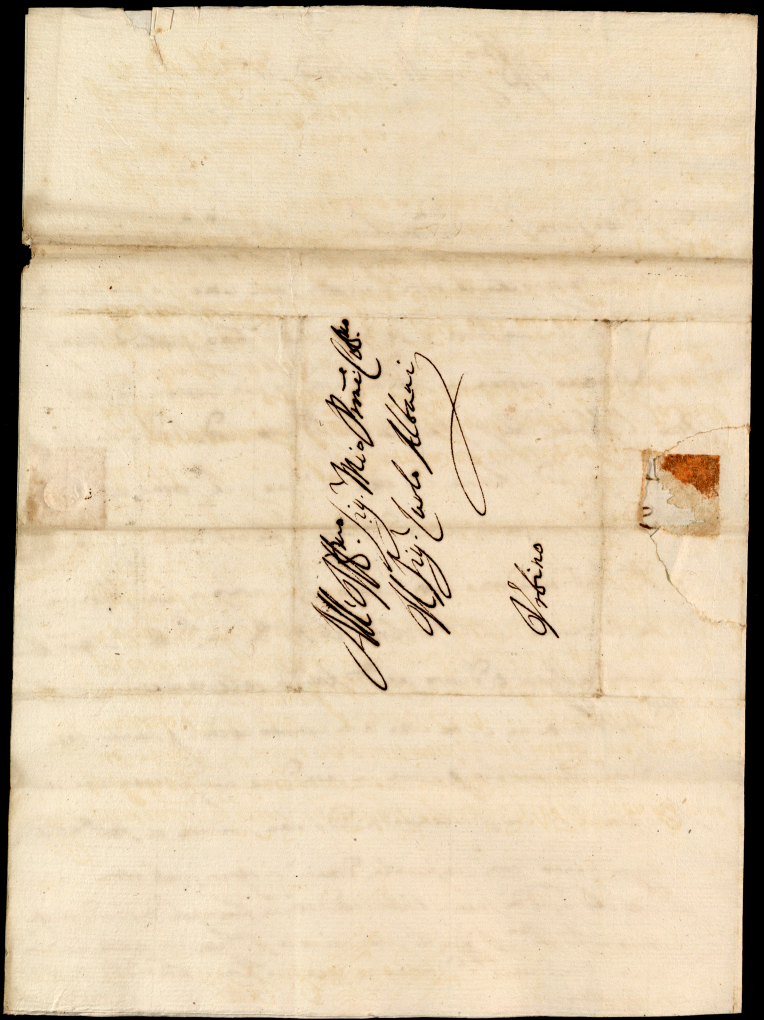 All Ill.mo Sig. Mio P.ne Col.mo
Il Sig. Carlo Albani
Urbino